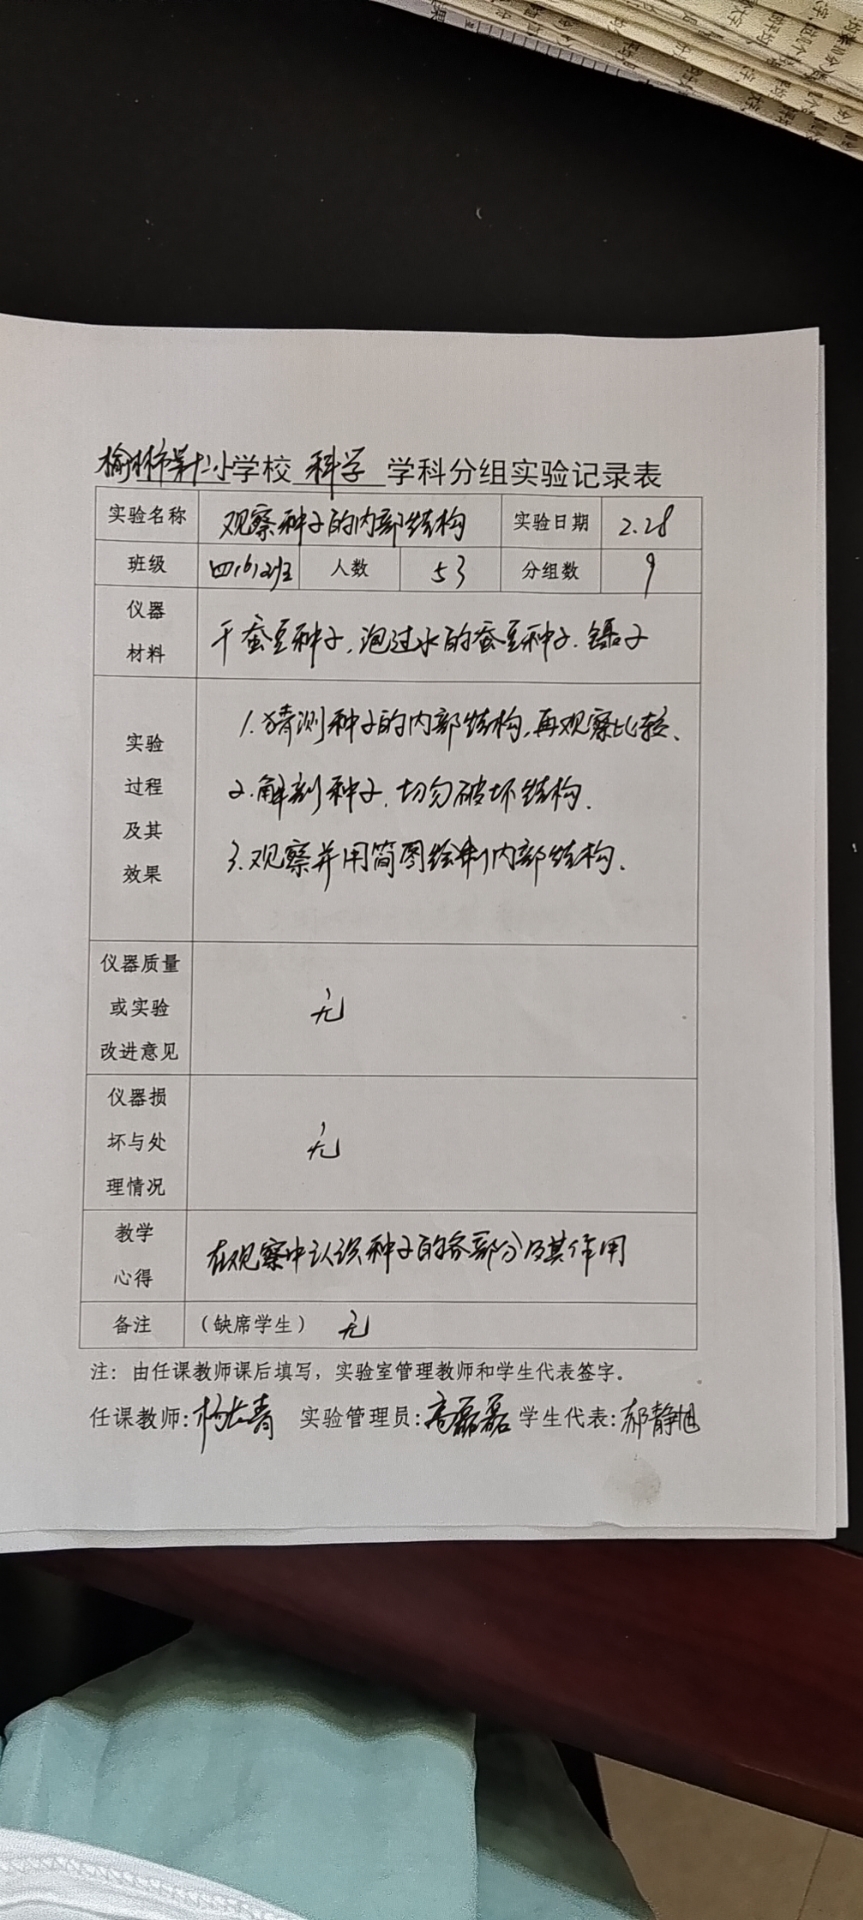 榆林市第十二小学校 科学 学科分组实验记录表
实验名称 观察种子的内部结构 实验日期 2.28
班级 四(6)班 人数 53 分组数 9
仪器材料 干蚕豆种子,泡过水的蚕豆种子.镊子
实验过程及其效果 1.猜测种子的内部结构,再观察比较、
2.解剖种子,切勿破坏结构.
3.观察并用简图绘制内部结构、
仪器质量或实验改进意见 无
仪器损坏与处理情况 无
教学心得 在观察中认识种子的各部分及其作用
备注 (缺席学生) 无
注:由任课教师课后填写,实验室管理教师和学生代表签字。
任课教师:杨长青 实验管理员:高磊磊 学生代表:郝静旭